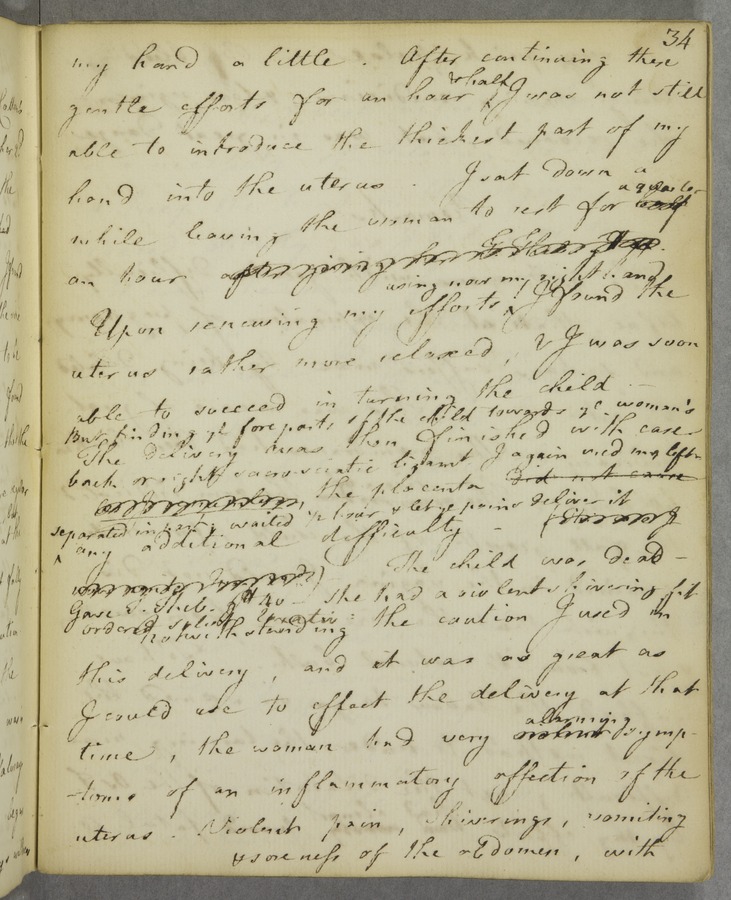 34
my hand a little. After continuing these
& half
gentle efforts for an hour I was not still
able to introduce the thickest part of my
hand into the uterus. I sat down a
a quarter
while leaving the woman to rest for half
an hour
using now my right hand
Upon renewing my efforts, I found the
uterus rather more relaxed, & I was soon
able to succeed in turning the child —
But finding ye fore parts of the child towards ye woman's
The delivery was then finished with ease
back or right sacrosciatic ligamt I again used my left
the placenta did not cause
separated in part; waited hour & let ye pains deliver it
any additional difficulty —
The child was dead —
Gave T. Theb. gtt 40 — she had a violent shivering fit
ordered
Notwithstanding the caution I used in
this delivery, and it was as great as
I could use to effect the delivery at that
alarming
time, the woman had very symp-
-toms of an inflammatory affection of the
uterus. Violent pain, shiverings, vomiting
& soreness of the abdomen, with